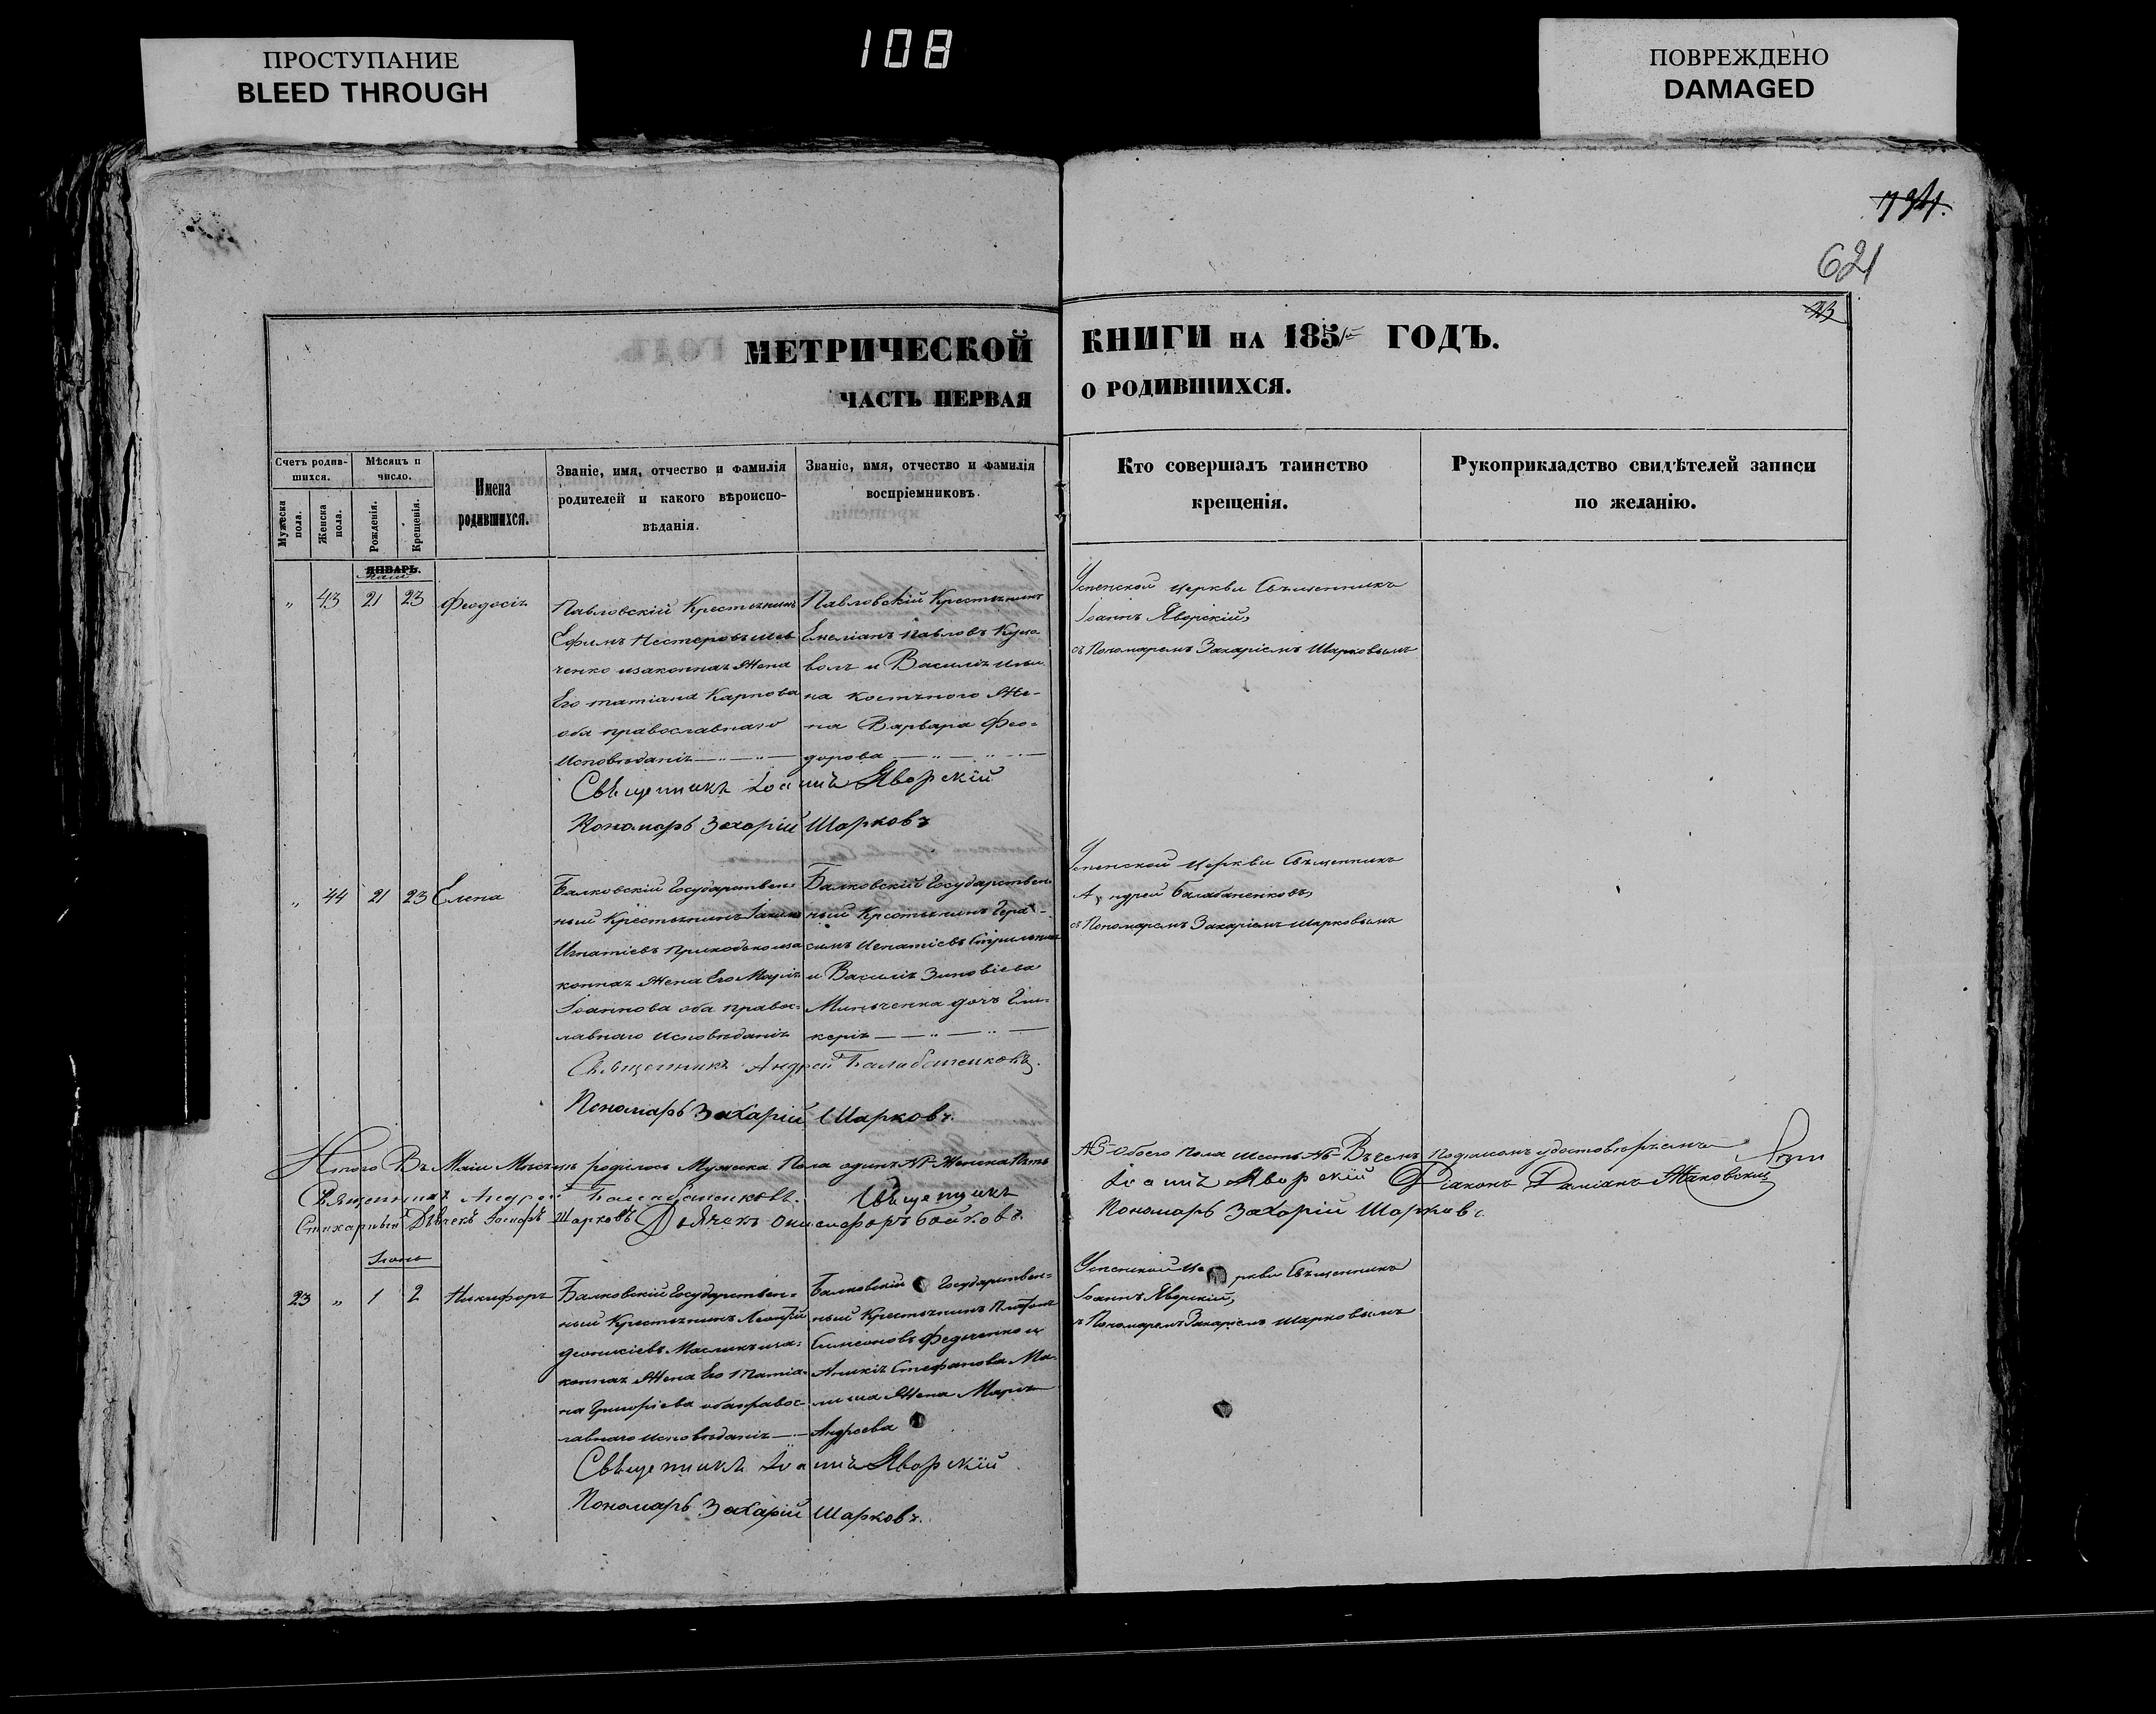 ПРОСТУПАНИЕ
BLEED THROUGH
108
ПОВРЕЖДЕНО
DAMAGED
621
23
МЕТРИЧЕСКОЙ КНИГИ НА 1851 ГОДЪ.
ЧАСТЬ ПЕРВАЯ О РОДИВШИХСЯ.
Счетъ родив-
шихся.
Мужеска пола.
Женска пола.
Мѣсяцъ и
число.
Рожденія.
Крещенія.
Имена
родившихся.
Званіе, имя, отчество и фамилія
родителей и какого вѣроиспо-
вѣданія.
Званіе, имя, отчество и фамилія
воспріемниковъ.
Кто совершалъ таинство
крещенія.
Рукоприкладство свидѣтелей записи
по желанію.
ЯНВАРЬ.
Маій
" 43 21 23 Феодосія
Павловскій Крестьянинъ
Ефимъ Нестеровъ Шев
ченко изаконная Жена
Его татіана Карпова
оба православнаго
Исповѣданія
Павловскій Крестьянинъ
Емеліанъ Павловъ
волъ и Василія
на Жe-
на Варвара Фео=
дорова
Успенской церкви Священникъ
Іоаннъ Яворскій,
съ Пономаремъ Захаріемъ Шарковымъ
Священникъ Іоаннъ Яворскій
Пономарь Захарій Шарковъ
" 44 21 23 Елена
Балковскій Государствен=
ный Крестьянинъ
Игнатіевъ Приходько иза
конная Жена Его Марія
Іоаннова оба правос=
лавнаго Исповѣданія
Балковскій Государствен
ный Крестьянинъ Гера-
симъ Игнатіевъ
и Василія Зиновіева
дочь Гли-
керія
Успенской церкви Священникъ
Андрей Балабаненковъ,
съ Пономаремъ Захаріемъ Шарковымъ
Священникъ Андрей Балабаненковъ.
Пономарь Захарій Шарковъ.
Итого Въ Маіи Мѣсяцѣ родилось Мужеска Пола одинъ №1 Женска Пять
№5 Обоего Пола шесть №6 Въ чемъ Подписомъ удостовѣряемъ
Священникъ Андрей Балабаненковъ. Священникъ
Іоаннъ Яворскій Діаконъ Даміанъ Жаковскій
Стихарный Дьячекъ Шарковъ Дьячекъ Онисифоръ Бойковъ.
Пономарь Захарій Шарковъ.
Іюнь
23 " 1 2 Никифоръ
Балковскій Государствен=
ный Крестьянинъ Леонтій
иза=
конная Жена Его Татіа=
на Григоріева оба правос=
лавнаго исповѣданія
Балковскій Государствен=
ный Крестьянинъ Платонъ
Симеоновъ Федченко и
Стефанова Ма-
Жена Марія
Андреева
Успенской церкви Священникъ
Іоаннъ Яворскій,
съ Пономаремъ Захаріемъ Шарковымъ
Священникъ Іоаннъ Яворскій
Пономарь Захарій Шарковъ.